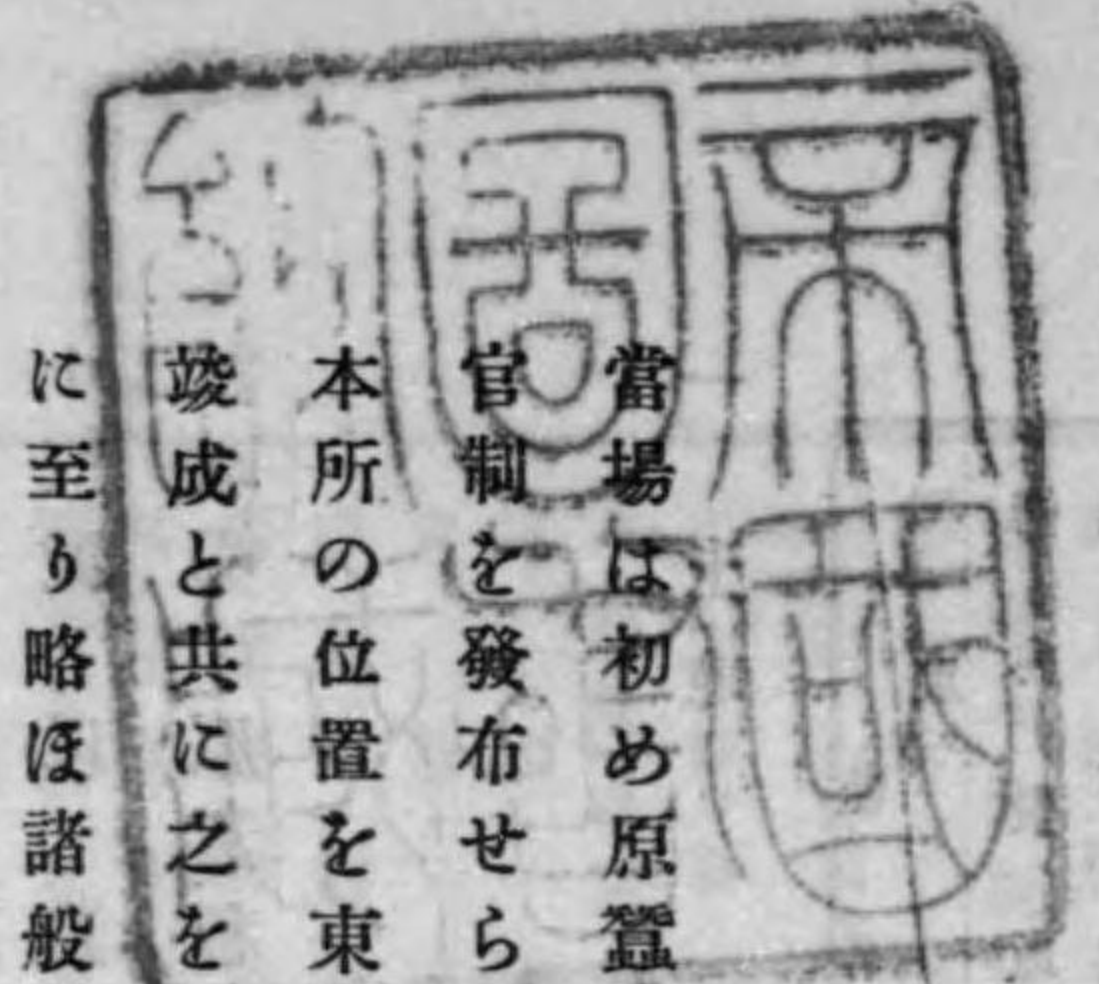 當場は初め原蠶
官制を發布せら
本所の位置を東
竣成と共に之を
に至り略ほ諸般